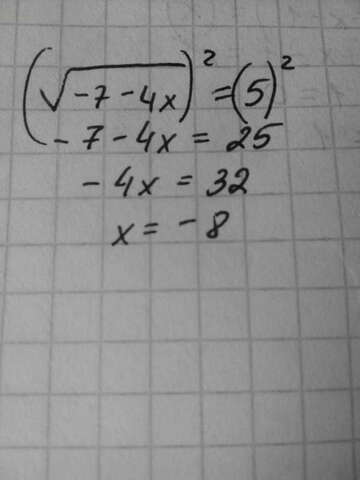 (√-7-4x)² = (5)²
-7-4x = 25
-4x = 32
x = -8